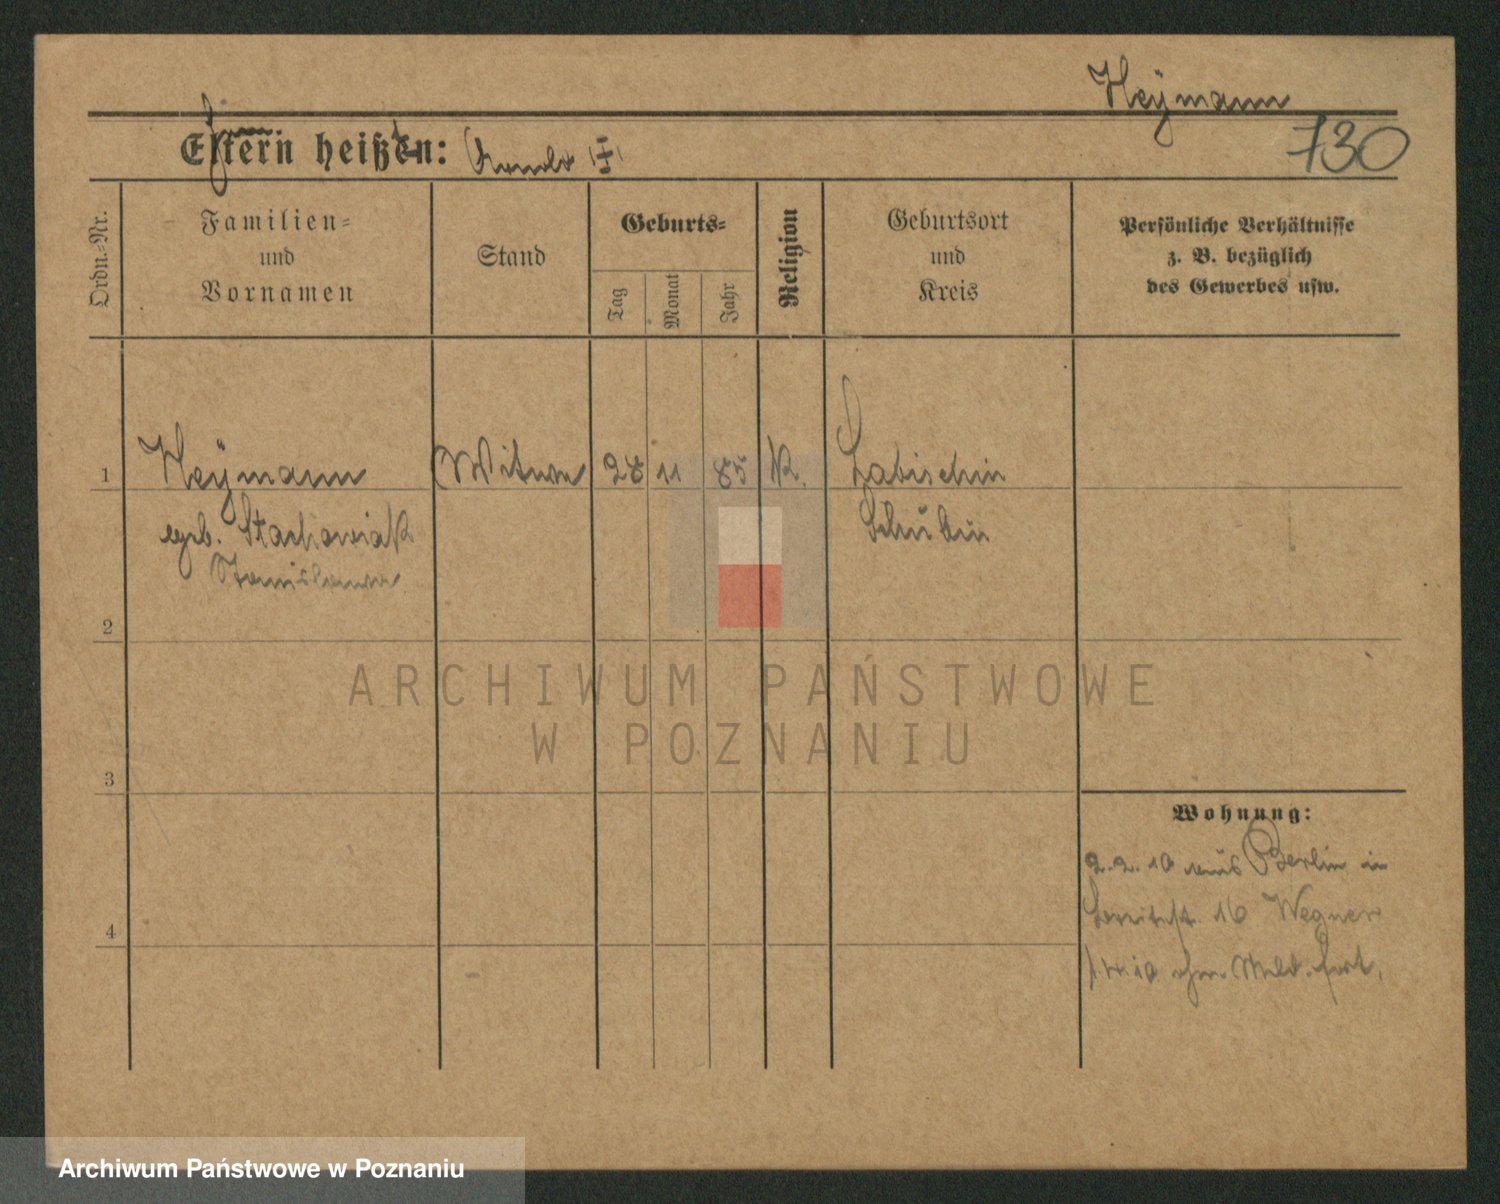 Heÿmann
730
Eltern heißen:
Ordn.=Nr.
Familien=
und
Vornamen
Stand
Geburts=
Tag
Monat
Jahr
Religion
Geburtsort
und
Kreis
Persönliche Verhältnisse
z. B. bezüglich
des Gewerbes usw.
1
Heÿmann
Witwe
28
11
85
K.
Labischin
geb. Stachowiak
Schubin
Stanislawa
2
ARCHIWUM PAŃSTWOWE
W POZNANIU
3
Wohnung:
2.2.10 aus Berlin in
16 Wegner
4
ohne Meld. fort.
Archiwum Państwowe w Poznaniu